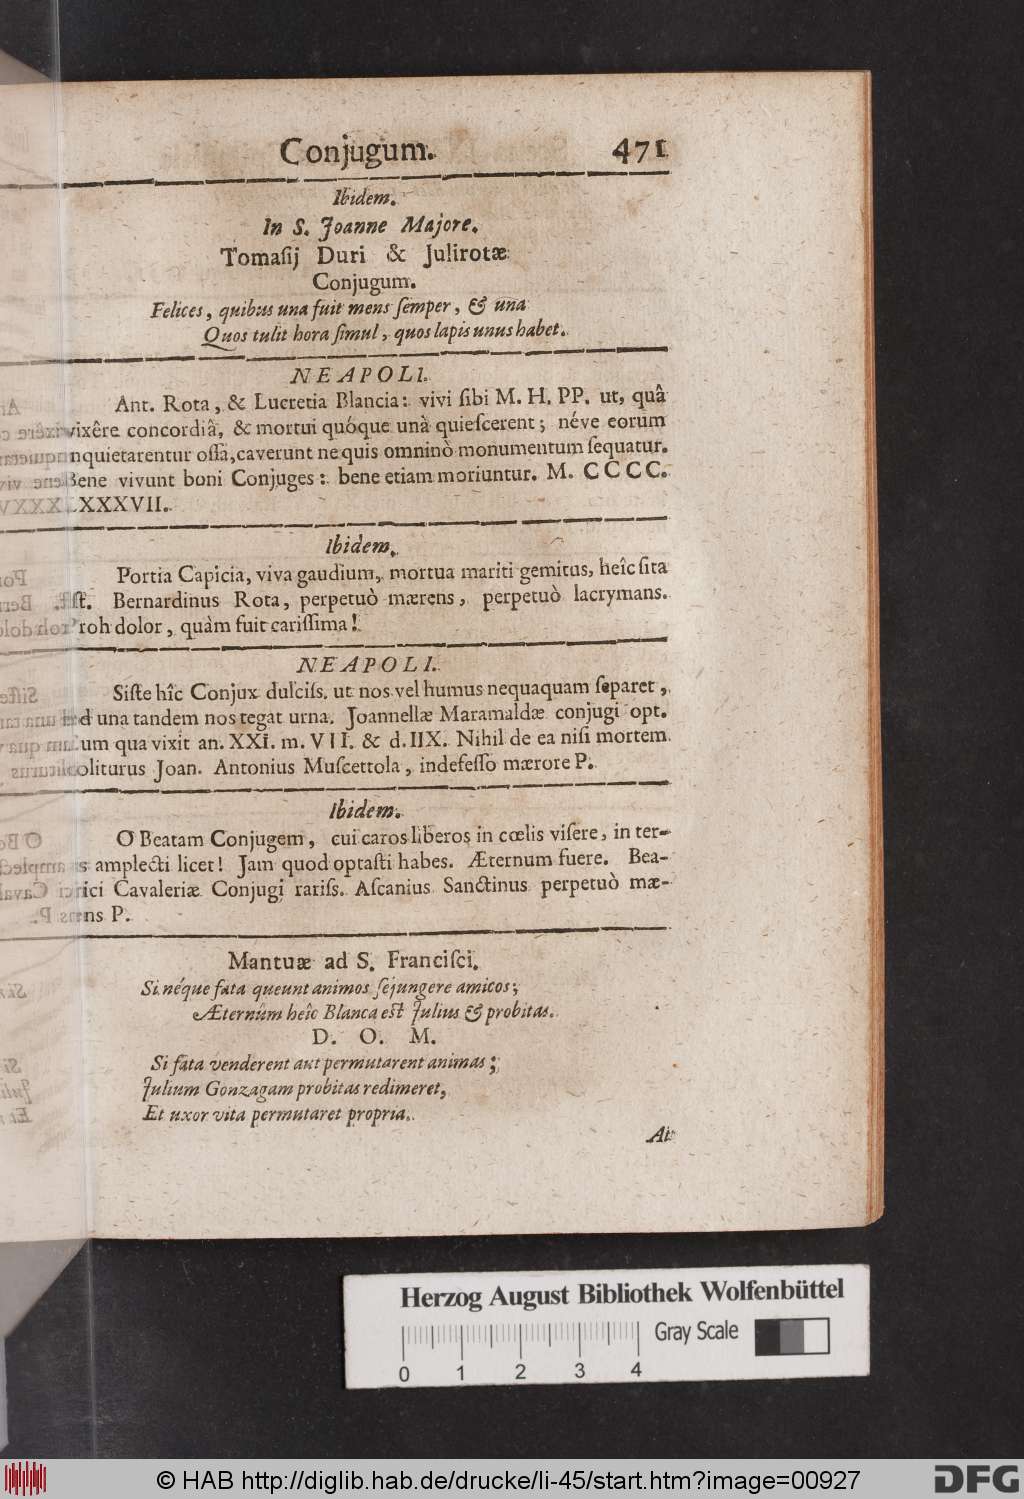 Conjugum. 471
Ibidem.
In S. Joanne Majore.
Tomaſij Duri & Julirotæ
Conjugum.
Felices, quibus una fuit mens ſemper, & una
Quos tulit hora ſimul, quos lapis unus habet.
NEAPOLI.
Ant. Rota, & Lucretia Blancia: vivi ſibi M. H. PP. ut, quâ
vixêre concordiâ, & mortui quóque unà quieſcerent; néve eorum
inquietarentur oſſa, caverunt ne quis omninò monumentum ſequatur.
Bene vivunt boni Conjuges: bene etiam moriuntur. M. CCCC.
LXXXVII.
Ibidem.
Portia Capicia, viva gaudium, mortua mariti gemitus, heîc ſita
eſt. Bernardinus Rota, perpetuò mærens, perpetuò lacrymans.
Proh dolor, quàm fuit cariſſima!
NEAPOLI.
Siſte hîc Conjux dulciſs. ut nos vel humus nequaquam ſeparet,
ſed una tandem nos tegat urna. Joannellæ Maramaldæ conjugi opt.
cum qua vixit an. XXI. m. VII. & d. IIX. Nihil de ea niſi mortem
doliturus Joan. Antonius Muſcettola, indefeſſo mærore P.
Ibidem.
O Beatam Conjugem, cui caros liberos in cœlis viſere, in ter-
ris amplecti licet! Jam quod optaſti habes. Æternum fuere. Bea-
trici Cavaleriæ Conjugi rariſs. Aſcanius Sanctinus perpetuò mæ-
rens P.
Mantuæ ad S. Franciſci.
Si néque fata queunt animos ſejungere amicos;
Æternûm heîc Blanca eſt Julius & probitas.
D. O. M.
Si fata venderent aut permutarent animas;
Julium Gonzagam probitas redimeret,
Et uxor vita permutaret propria.
At
Herzog August Bibliothek Wolfenbüttel
Gray Scale
0 1 2 3 4
© HAB http://diglib.hab.de/drucke/li-45/start.htm?image=00927
DFG